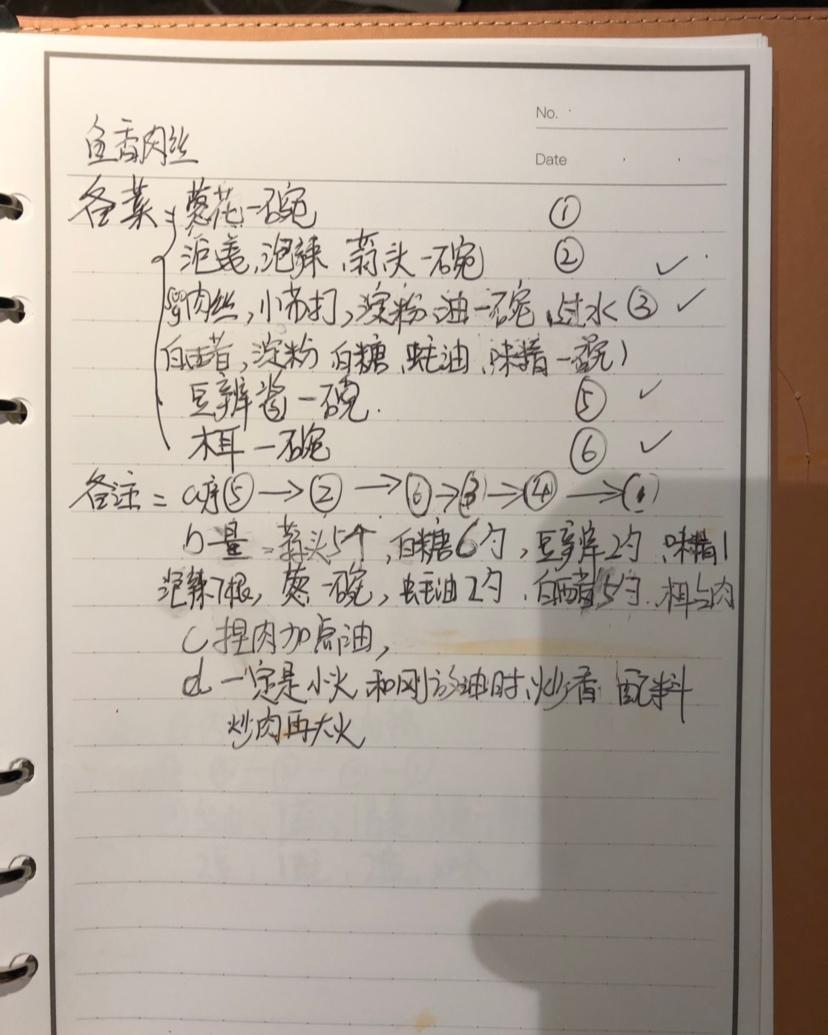 No.
Date
鱼香肉丝
备菜：葱花一碗 ①
泡姜，泡辣，蒜头一碗 ② ✓
500g肉丝，小苏打，淀粉，油一碗，过水 ③ ✓
白醋，淀粉，白糖，蚝油，味精一碗）
豆辨酱一碗. ⑤ ✓
木耳一碗 ⑥ ✓
备注：a序⑤→②→⑥→③→④→①
b量：蒜头5个，白糖6勺，豆辨2勺，味精1
泡辣7根，葱一碗，蚝油2勺，白醋5勺，
c 捏肉加点油，
d 一定是小火和刚放油时，炒香配料
炒肉再大火